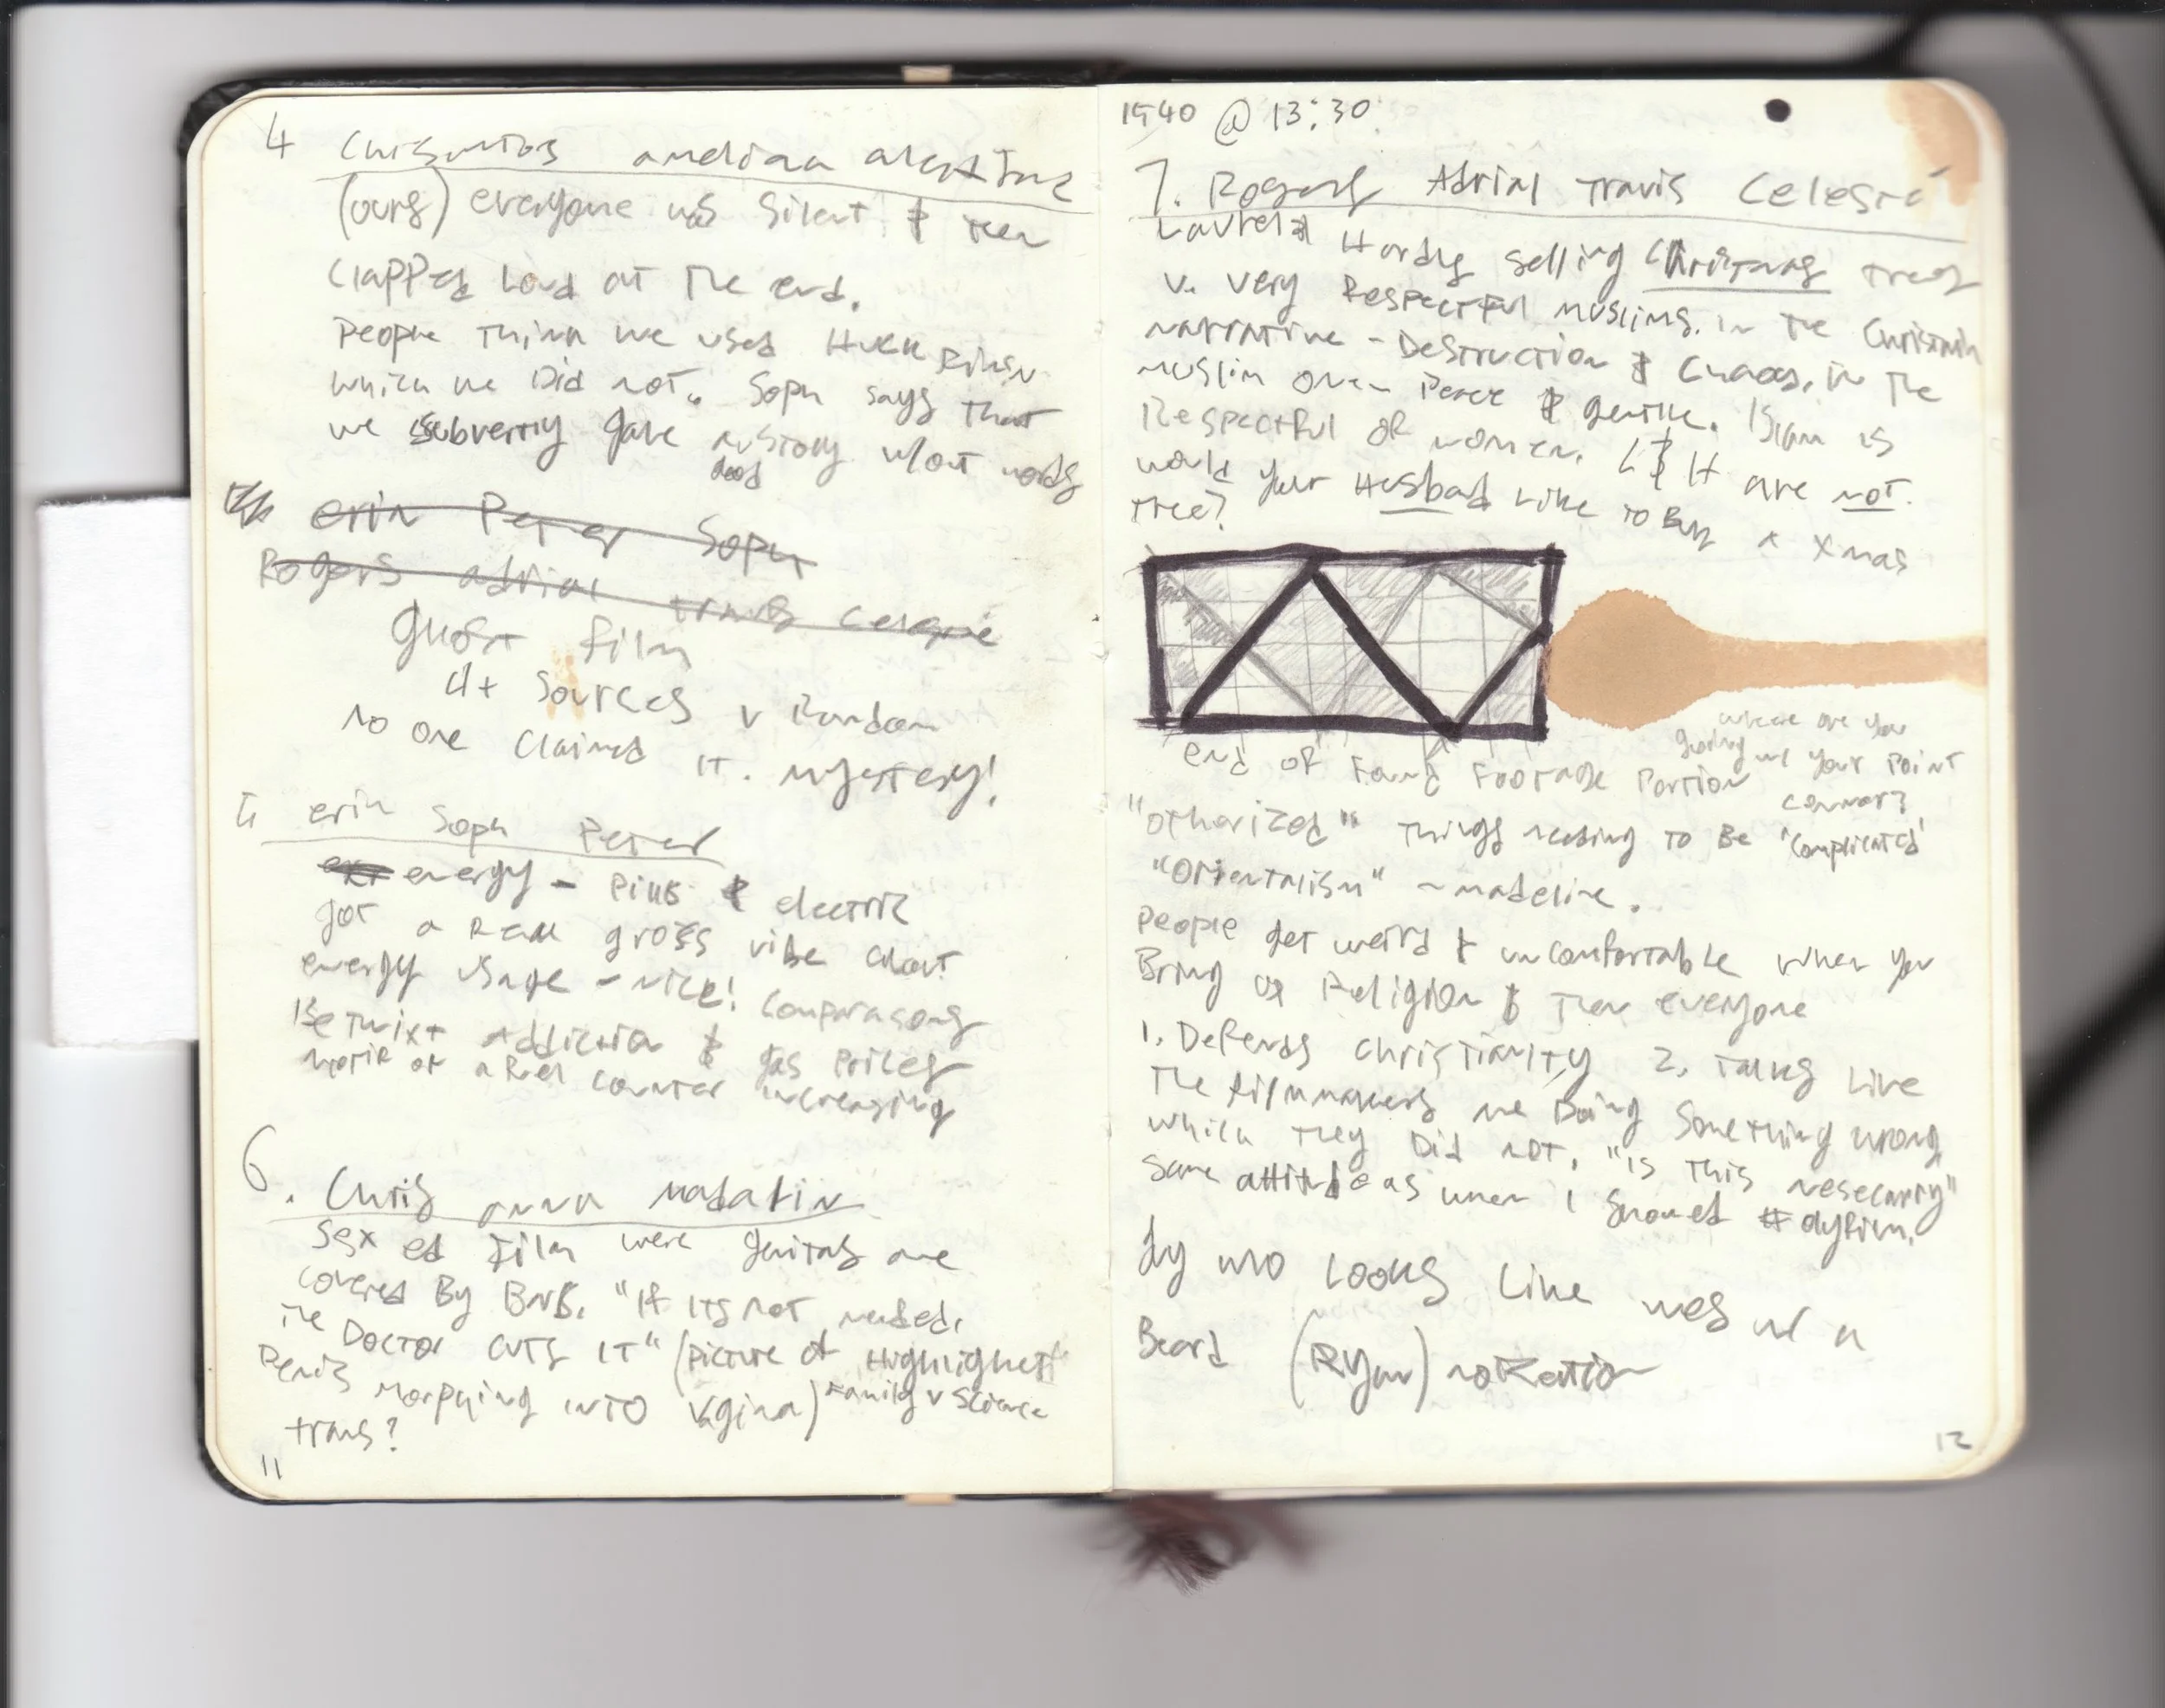 4
(ours) everyone was silent & then
clapped loud at the end.
People think we used
which we Did not. Soph says that
we gave w/out words
erin Peter Soph
Rogers adrial travis Celeste
ghost film
4+ sources v Random
no one claimed it. mystery!
erin Soph Peter
energy - Pills & electric
got a Real gross vibe about
energy usage - nice! comparasons
Betwixt Addiction & gas Prices
motif of a Red counter increasing
6. Chris anna madalin
Sex ed film were genitals are
covered By Bars. "If its not needed,
the Doctor cuts it" (picture of Highlighted
Penis morphing into vagina) Family v Science
trans?
11
1940 @ 13:30
7. Rogers Adrial Travis Celeste
Laurel & Hardy selling Christmas trees
v. very Respectful muslims. in the Christain
narrative - Destruction & Chaos. in the
muslim one - Peace & gentle. Islam is
Respectful of women. L & H are not.
would your Husbad Like to Buy a Xmas
tree?
end of Found Footage Portion
where are you
going w/ your point
connor?
"otherized" things needing to Be 'complicated'
"Orientalism" ~ madeline.
People get weird & uncomfortable when you
Bring up Religion & then everyone
1. Defends christianity 2. Talks like
the filmmakers are Doing something wrong
which they Did not. "is this nesecarry"
same attitude as when I showed
guy who looks like wes w/ a
Beard (Ryan)
12